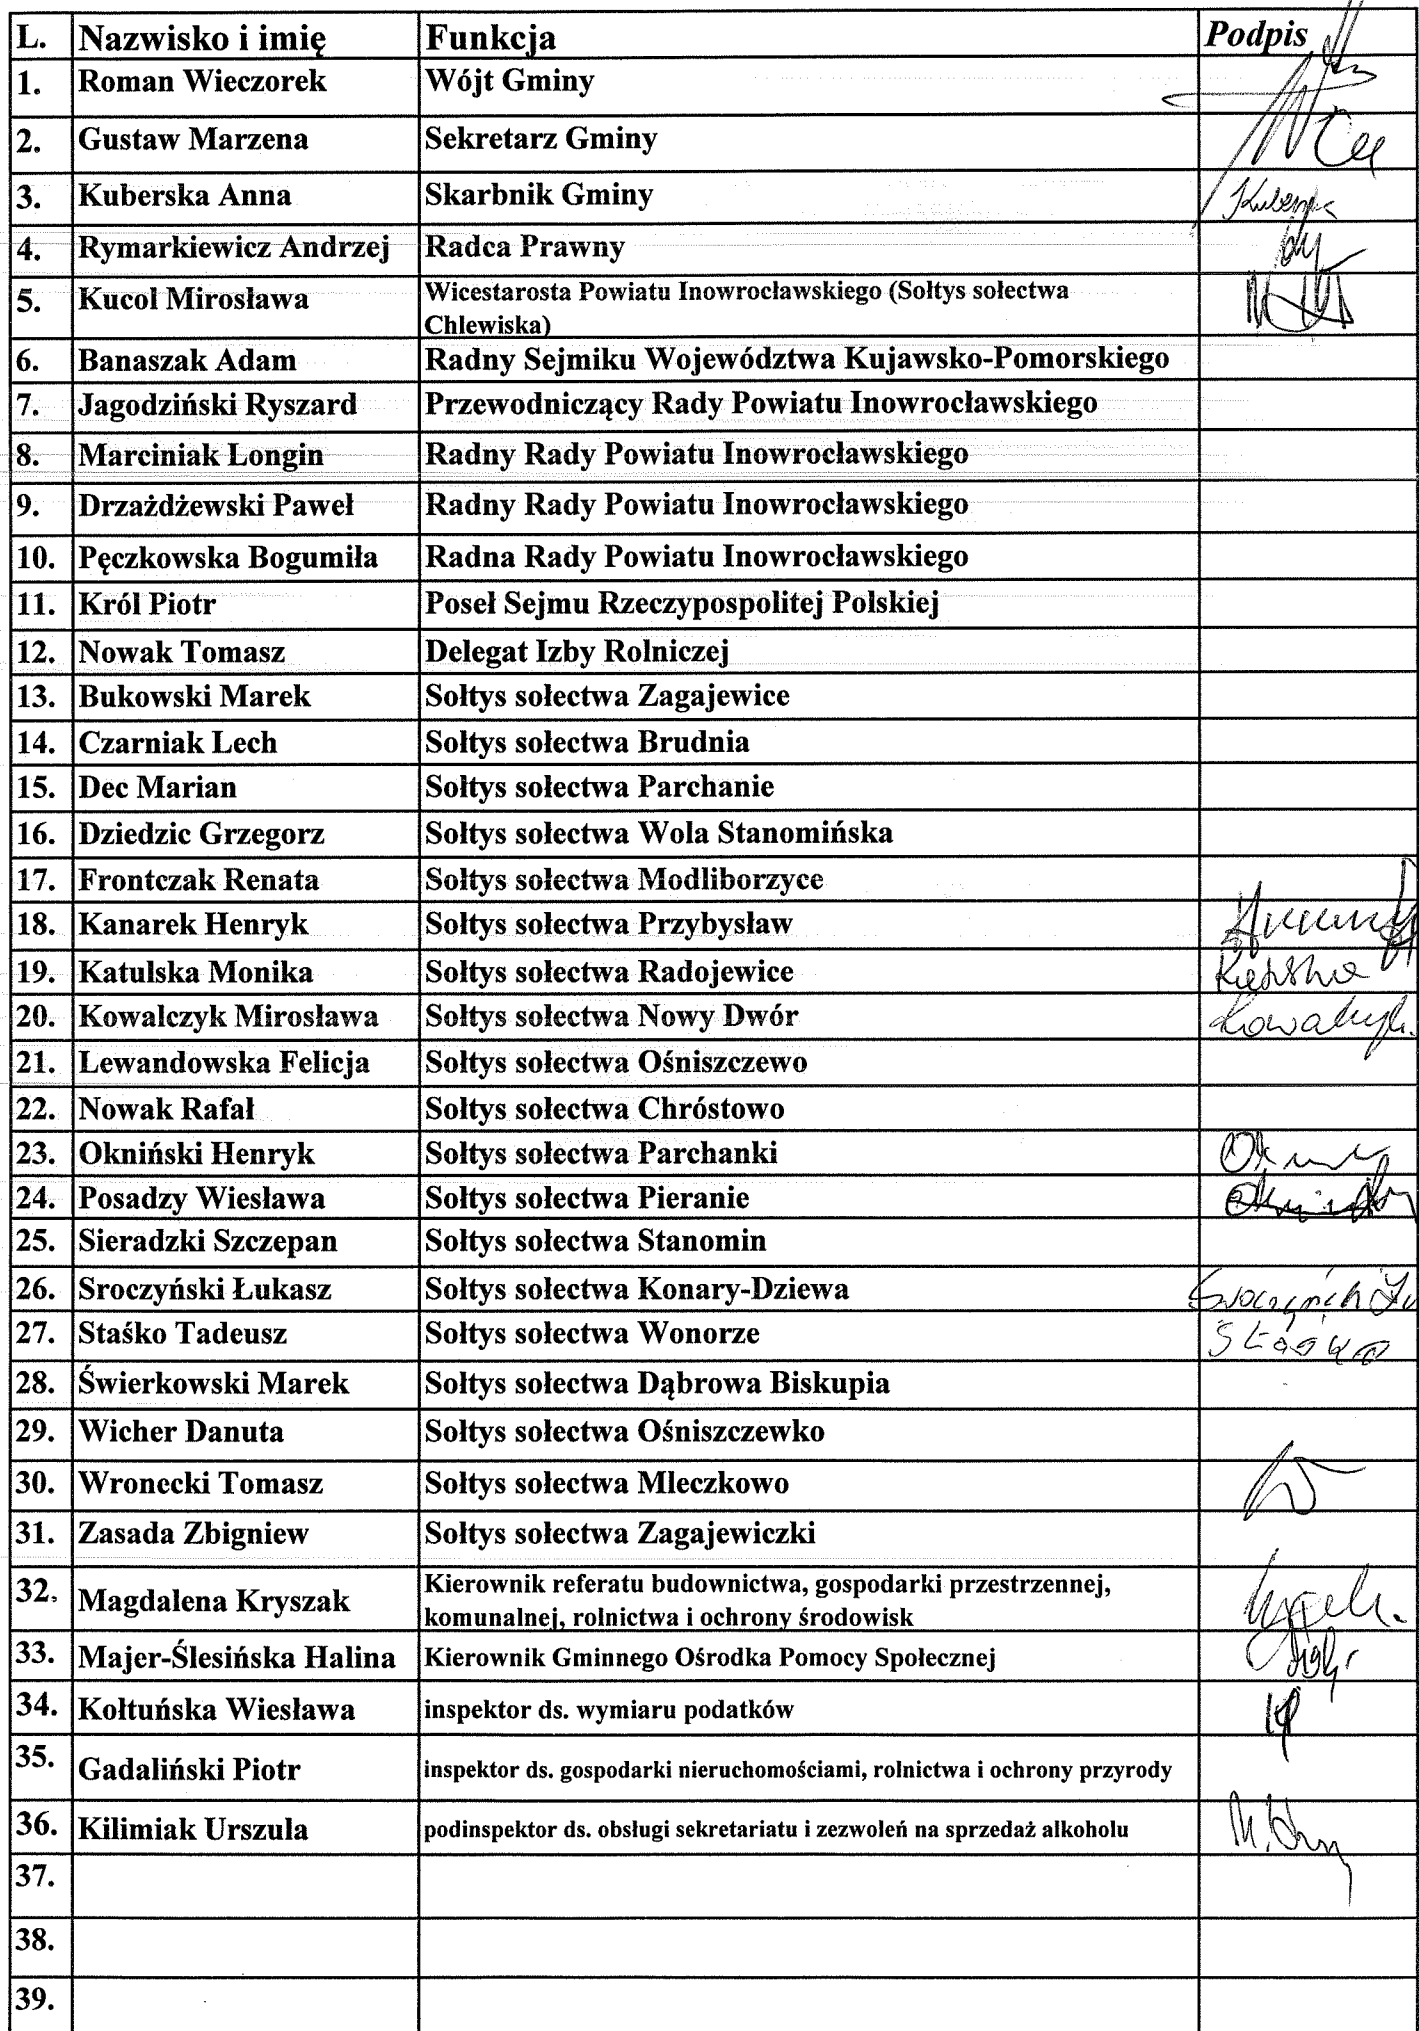 L. Nazwisko i imię Funkcja Podpis
1. Roman Wieczorek Wójt Gminy
2. Gustaw Marzena Sekretarz Gminy
3. Kuberska Anna Skarbnik Gminy
4. Rymarkiewicz Andrzej Radca Prawny
5. Kucol Mirosława Wicestarosta Powiatu Inowrocławskiego (Sołtys sołectwa
Chlewiska)
6. Banaszak Adam Radny Sejmiku Województwa Kujawsko-Pomorskiego
7. Jagodziński Ryszard Przewodniczący Rady Powiatu Inowrocławskiego
8. Marciniak Longin Radny Rady Powiatu Inowrocławskiego
9. Drzażdżewski Paweł Radny Rady Powiatu Inowrocławskiego
10. Pęczkowska Bogumiła Radna Rady Powiatu Inowrocławskiego
11. Król Piotr Poseł Sejmu Rzeczypospolitej Polskiej
12. Nowak Tomasz Delegat Izby Rolniczej
13. Bukowski Marek Sołtys sołectwa Zagajewice
14. Czarniak Lech Sołtys sołectwa Brudnia
15. Dec Marian Sołtys sołectwa Parchanie
16. Dziedzic Grzegorz Sołtys sołectwa Wola Stanomińska
17. Frontczak Renata Sołtys sołectwa Modliborzyce
18. Kanarek Henryk Sołtys sołectwa Przybysław
19. Katulska Monika Sołtys sołectwa Radojewice
20. Kowalczyk Mirosława Sołtys sołectwa Nowy Dwór
21. Lewandowska Felicja Sołtys sołectwa Ośniszczewo
22. Nowak Rafał Sołtys sołectwa Chróstowo
23. Okniński Henryk Sołtys sołectwa Parchanki
24. Posadzy Wiesława Sołtys sołectwa Pieranie
25. Sieradzki Szczepan Sołtys sołectwa Stanomin
26. Sroczyński Łukasz Sołtys sołectwa Konary-Dziewa
27. Staśko Tadeusz Sołtys sołectwa Wonorze
28. Świerkowski Marek Sołtys sołectwa Dąbrowa Biskupia
29. Wicher Danuta Sołtys sołectwa Ośniszczewko
30. Wronecki Tomasz Sołtys sołectwa Mleczkowo
31. Zasada Zbigniew Sołtys sołectwa Zagajewiczki
32. Magdalena Kryszak Kierownik referatu budownictwa, gospodarki przestrzennej,
komunalnej, rolnictwa i ochrony środowisk
33. Majer-Ślesińska Halina Kierownik Gminnego Ośrodka Pomocy Społecznej
34. Kołtuńska Wiesława inspektor ds. wymiaru podatków
35. Gadaliński Piotr inspektor ds. gospodarki nieruchomościami, rolnictwa i ochrony przyrody
36. Kilimiak Urszula podinspektor ds. obsługi sekretariatu i zezwoleń na sprzedaż alkoholu
37.
38.
39.